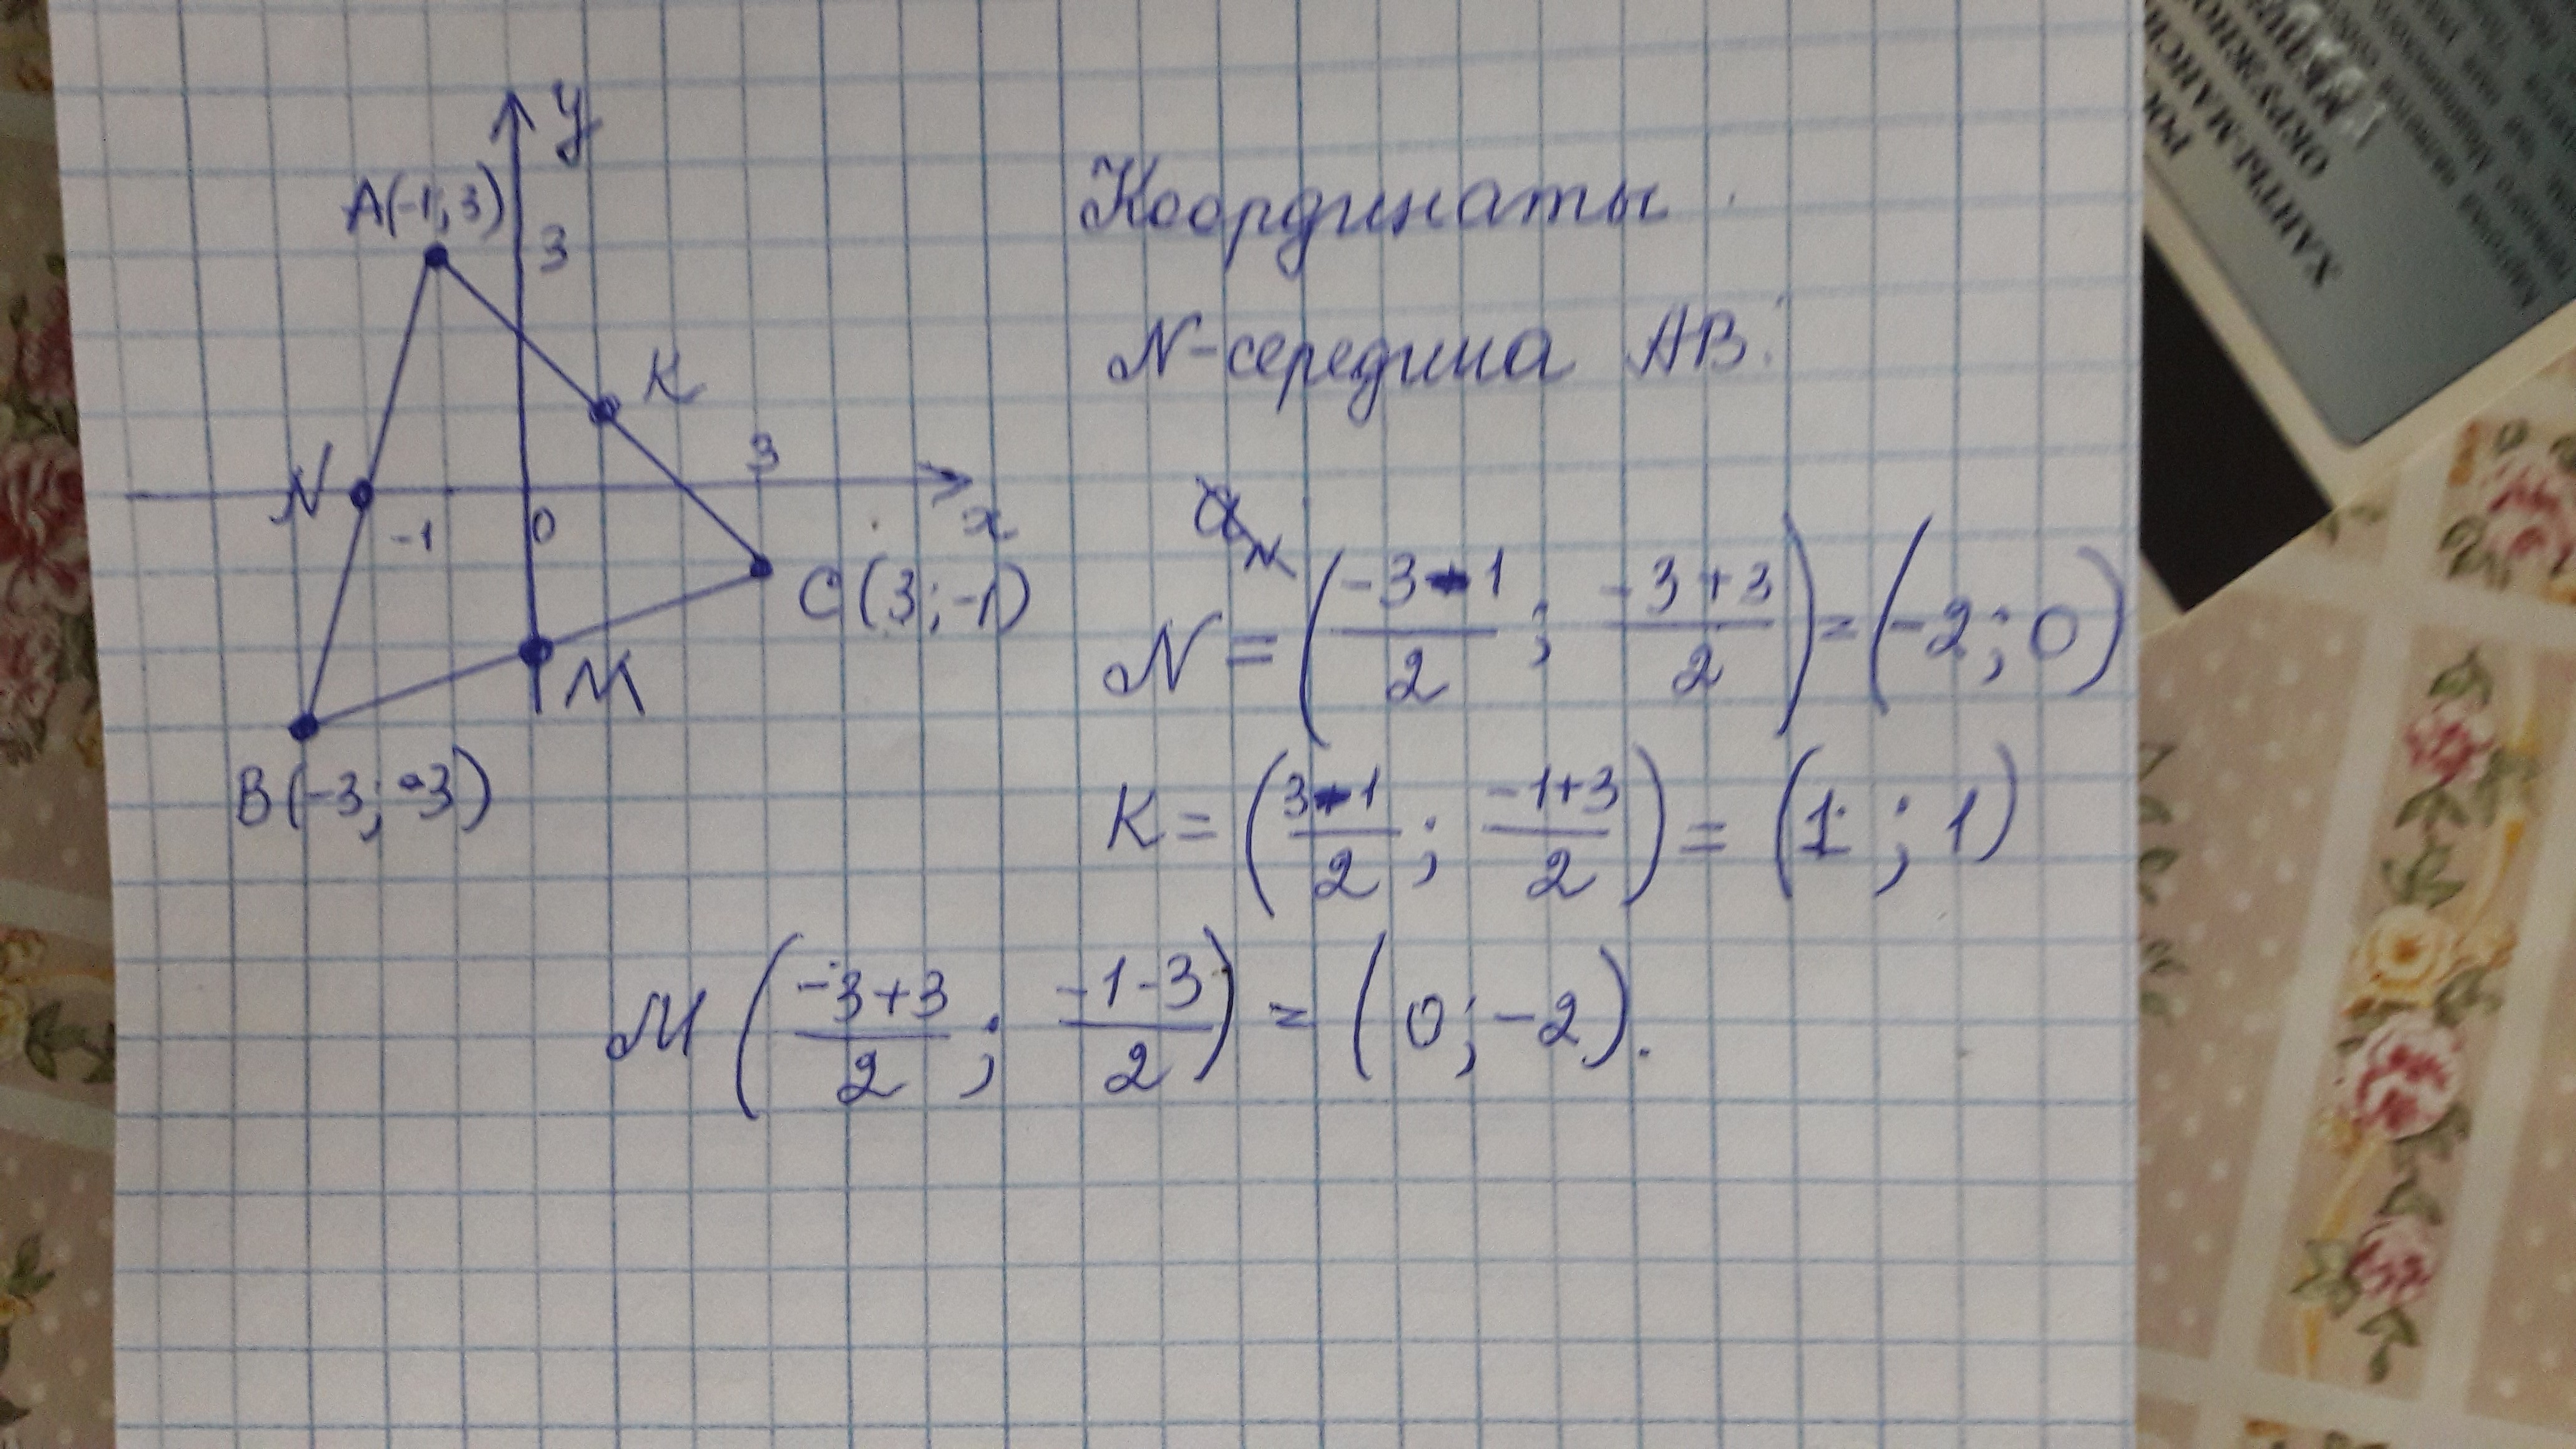 y
A(-1; 3)
3
K
N
-1
0
3
x
C(3; -1)
M
B(-3; -3)
Координаты
N-середина AB:
N = (-3-1/2; -3+3/2) = (-2; 0)
K = (3-1/2; -1+3/2) = (1; 1)
M (-3+3/2; -1-3/2) = (0; -2).
ХАНТЫ-МАНСИ